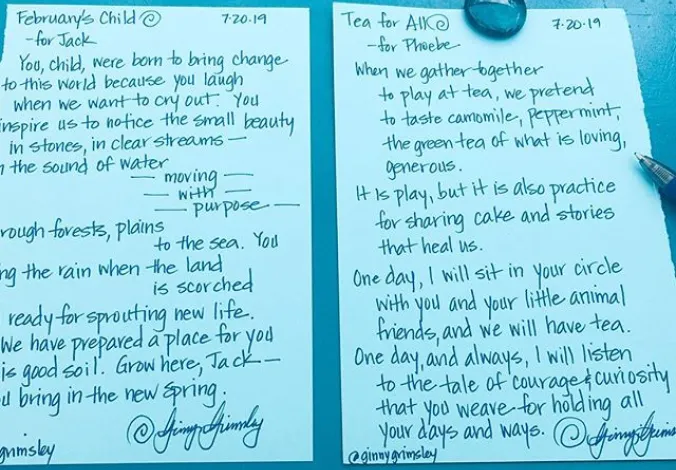 February's Child © 7-20-19
-for Jack
You, child, were born to bring change
to this world because you laugh
when we want to cry out. You
inspire us to notice the small beauty
in stones, in clear streams —
the sound of water
— moving —
— with —
— purpose —
rough forests, plains
to the sea. You
the rain when the land
is scorched
ready for sprouting new life.
We have prepared a place for you
is good soil. Grow here, Jack —
bring in the new Spring.
© Ginny Grimsley
grimsley
Tea for All © 7-20-19
-for Phoebe
When we gather together
to play at tea, we pretend
to taste camomile, peppermint,
the green tea of what is loving,
generous.
It is play, but it is also practice
for sharing cake and stories
that heal us.
One day, I will sit in your circle
with you and your little animal
friends, and we will have tea.
One day, and always, I will listen
to the tale of courage & curiosity
that you weave for holding all
your days and ways. © Ginny Grims
@ginnygrimsley